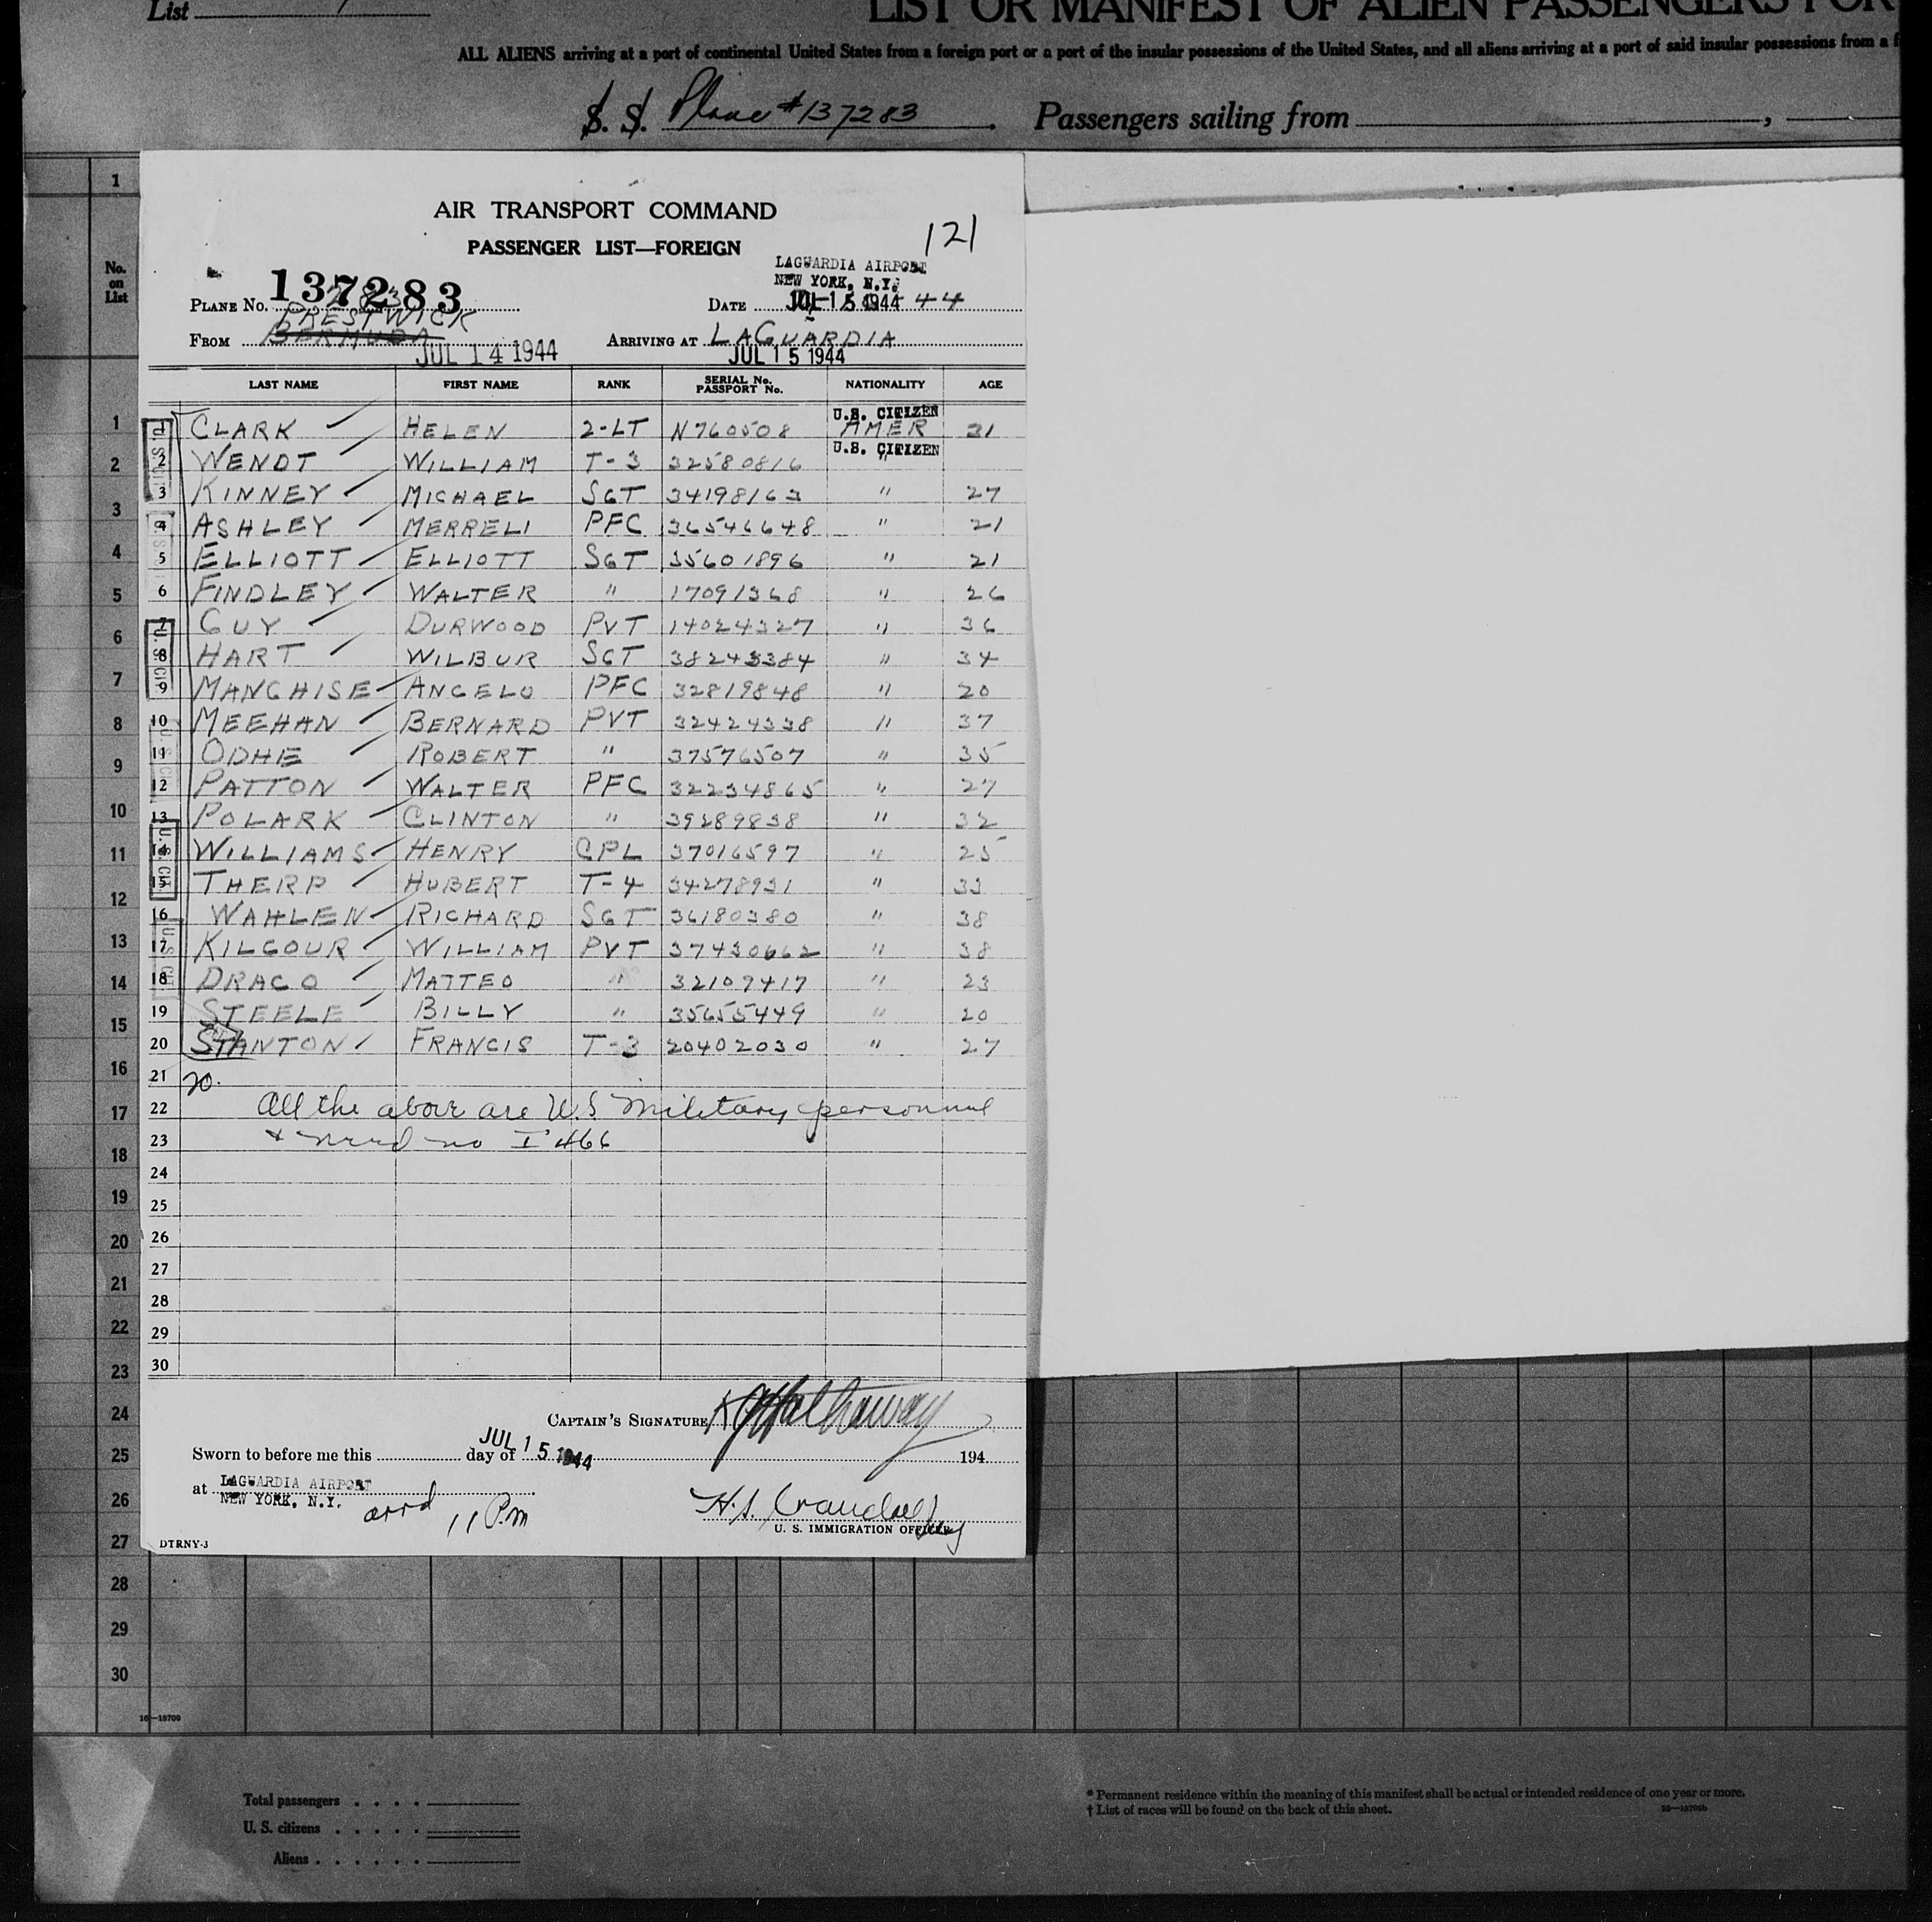 List
LIST OR MANIFEST OF ALIEN PASSENGERS FOR
ALL ALIENS arriving at a port of continental United States from a foreign port or a port of the insular possessions of the United States, and all aliens arriving at a port of said insular possessions from a f
S. S. Plane #137283. Passengers sailing from ,
No. on List
AIR TRANSPORT COMMAND
PASSENGER LIST—FOREIGN
121
LAGUARDIA AIRPORT
NEW YORK, N.Y.
PLANE NO. 137283 DATE JUL 15 1944 44
PRESTWICK
FROM BERMUDA ARRIVING AT LAGUARDIA
JUL 14 1944 JUL 15 1944
LAST NAME FIRST NAME RANK SERIAL No. PASSPORT No. NATIONALITY AGE
U.S. CITIZEN
1 CLARK HELEN 2-LT N760508 AMER 31
U.S. CITIZEN
2 WENDT WILLIAM T-3 32580816 "
3 KINNEY MICHAEL SGT 34198163 " 27
4 ASHLEY MERRELL PFC 36546648 " 21
5 ELLIOTT ELLIOTT SGT 35601896 " 21
6 FINDLEY WALTER " 17091368 " 26
7 GUY DURWOOD PVT 14024327 " 36
8 HART WILBUR SGT 38243384 " 34
9 MANGHISE ANGELO PFC 32819848 " 20
10 MEEHAN BERNARD PVT 32424338 " 37
11 ODHE ROBERT " 37576507 " 35
12 PATTON WALTER PFC 32234865 " 27
13 POLARK CLINTON " 39289838 " 32
14 WILLIAMS HENRY CPL 37016597 " 25
15 THERP HUBERT T-4 34278931 " 33
16 WAHLEN RICHARD SGT 36180380 " 38
17 KILGOUR WILLIAM PVT 37430662 " 38
18 DRAGO MATTEO " 32109417 " 23
19 STEELE BILLY " 35655449 " 20
20 STANTON FRANCIS T-3 20402030 " 27
21 20.
22 All the above are U.S military personnel
23 & need no I 466
24
25
26
27
28
29
30
CAPTAIN'S SIGNATURE Hathaway
Sworn to before me this day of JUL 15 1944 194
at LAGUARDIA AIRPORT
NEW YORK, N.Y. arrd 11 P.m
H.S. Crandall
U. S. IMMIGRATION OFFICER
DTRNY-3
1
1
2
3
4
5
6
7
8
9
10
11
12
13
14
15
16
17
18
19
20
21
22
23
24
25
26
27
28
29
30
16—18709
Total passengers . . . .
U. S. citizens . . . . .
Aliens . . . . . .
* Permanent residence within the meaning of this manifest shall be actual or intended residence of one year or more.
† List of races will be found on the back of this sheet.